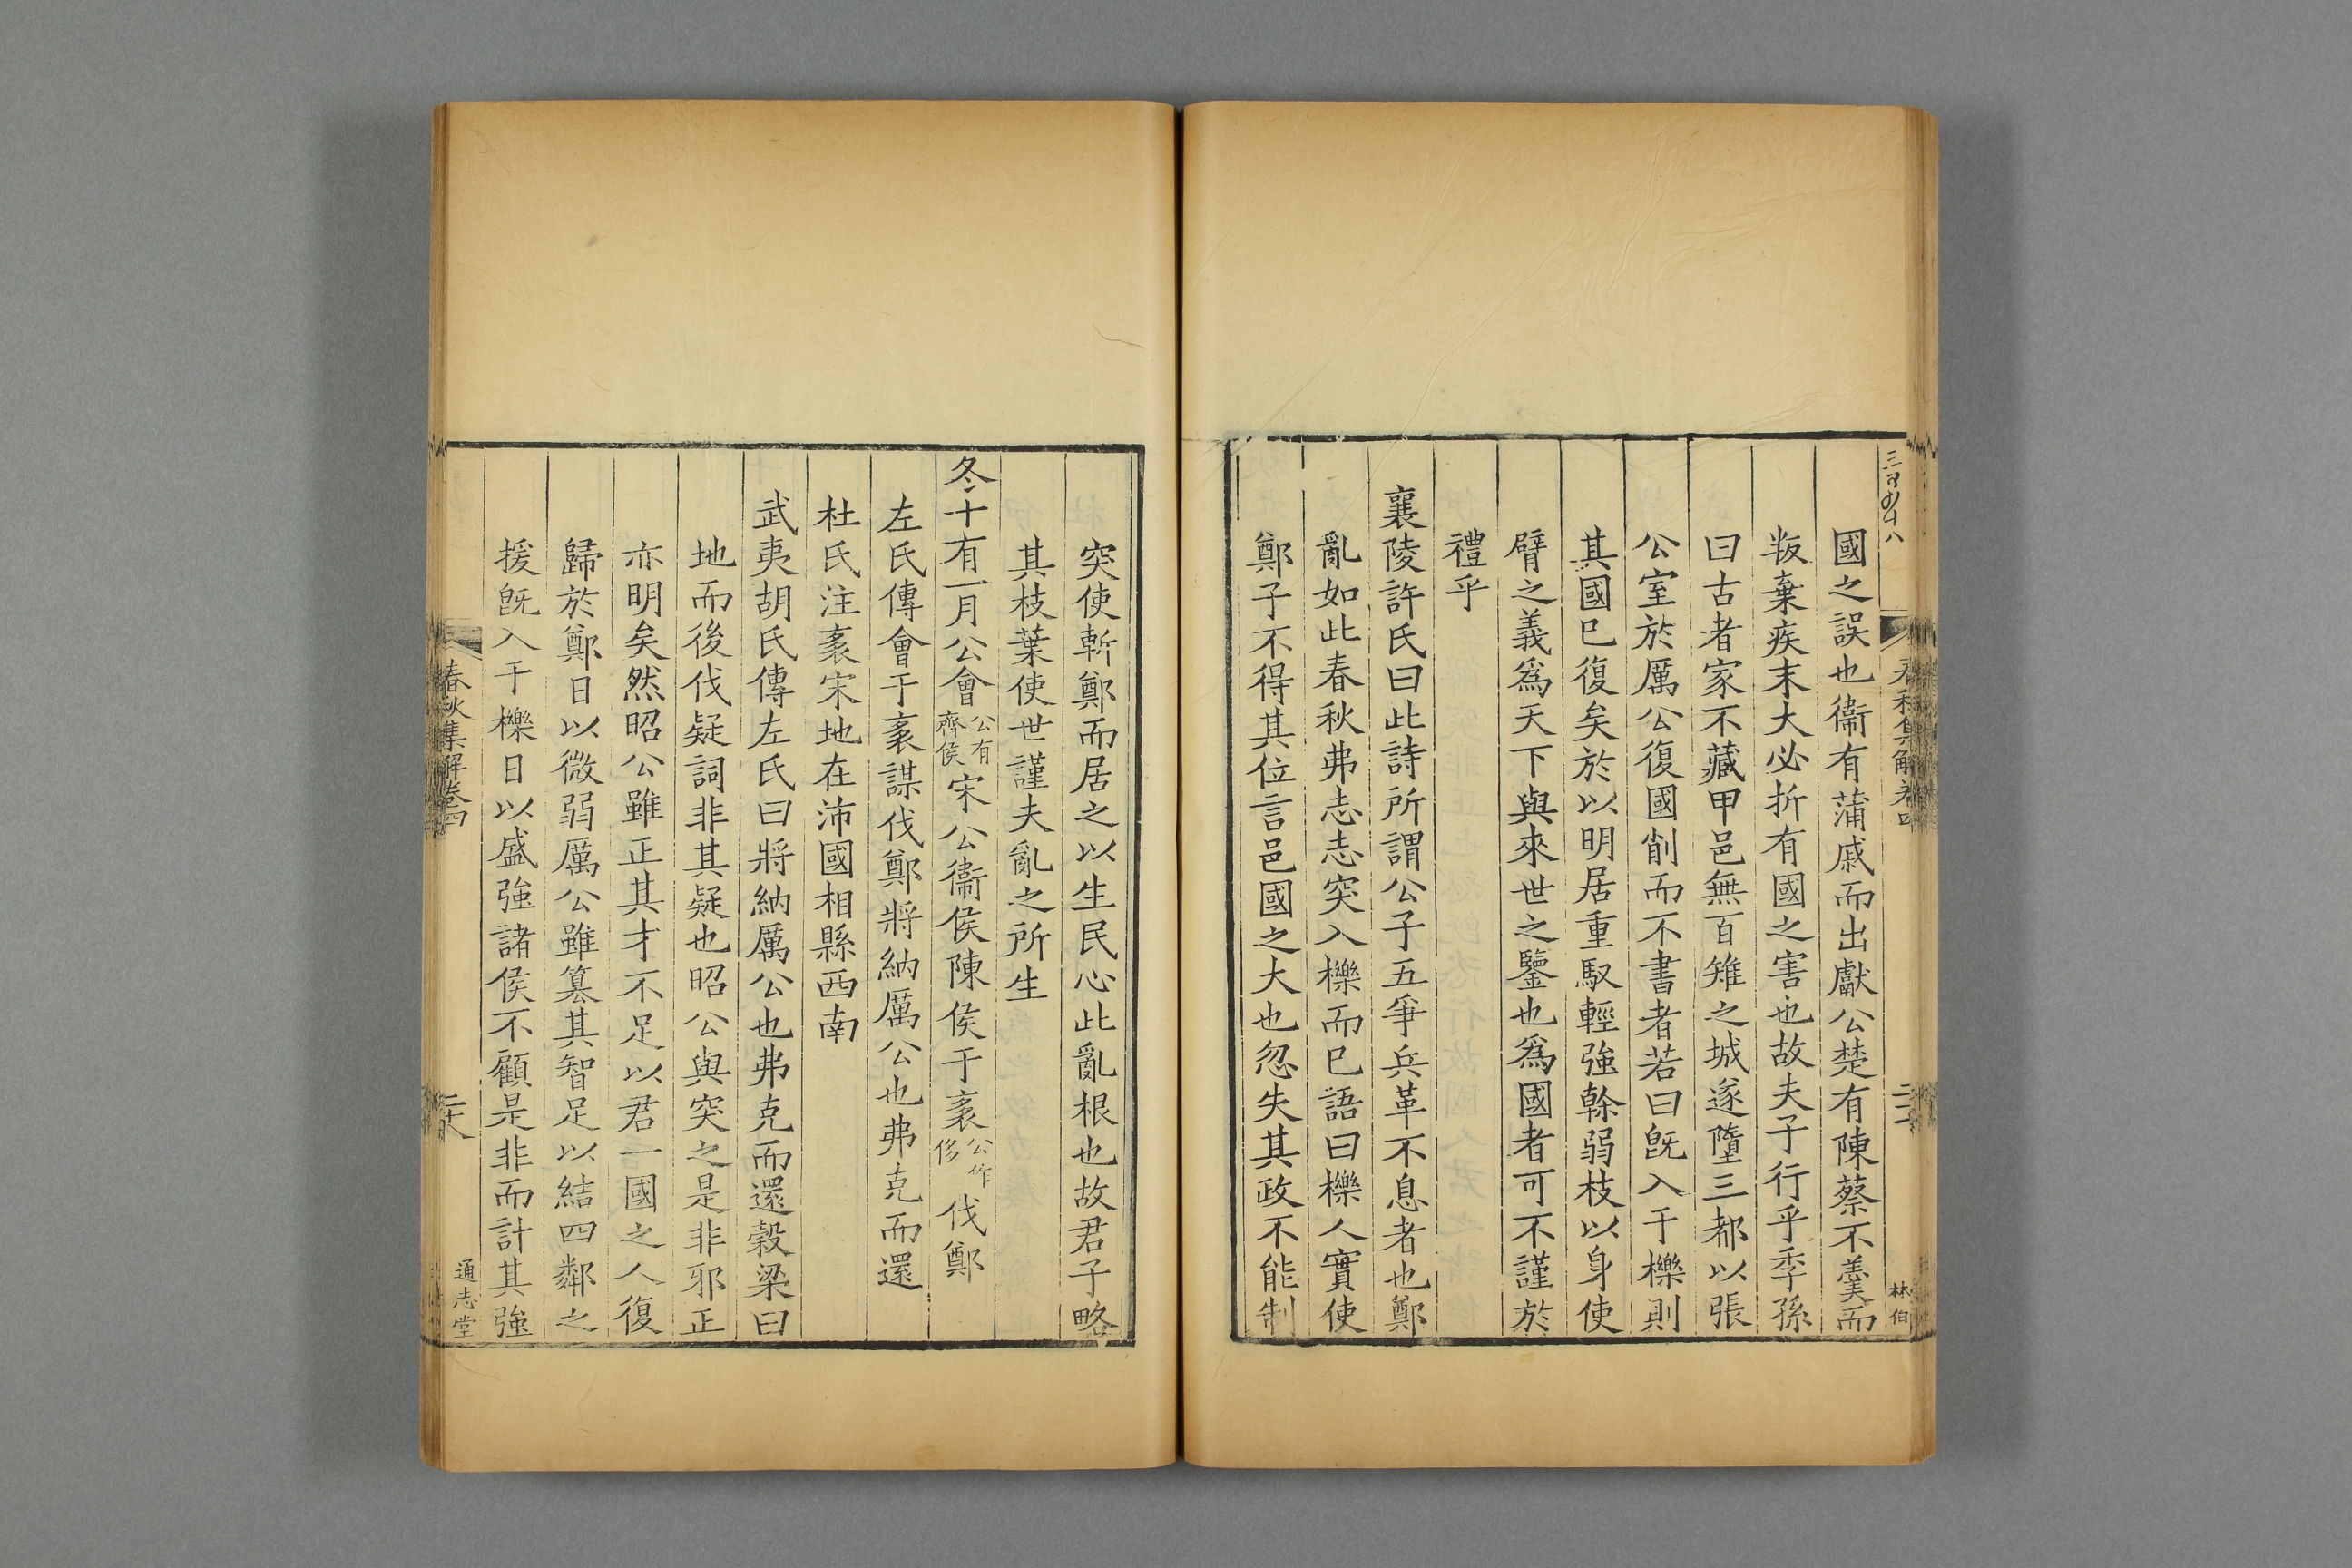 國之誤也衞有蒲戚而出獻公楚有陳蔡不羹而
叛棄疾末大必折有國之害也故夫子行乎季孫
曰古者家不藏甲邑無百雉之城遂墮三都以張
公室於厲公復國削而不書者若曰旣入于櫟則
其國已復矣於以明居重馭輕強榦弱枝以身使
臂之義爲天下與來世之鑒也爲國者可不謹於
禮乎
襄陵許氏曰此詩所謂公子五爭兵革不息者也鄭
亂如此春秋弗志志突入櫟而已語曰櫟人實使
鄭子不得其位言邑國之大也忽失其政不能制
春秋集解卷四
林伯
突使斬鄭而居之以生民心此亂根也故君子略
其枝葉使世謹夫亂之所生
冬十有一月公會公有齊侯宋公衞侯陳侯于袲公作侈伐鄭
左氏傳會于袲謀伐鄭將納厲公也弗克而還
杜氏注袲宋地在沛國相縣西南
武夷胡氏傳左氏曰將納厲公也弗克而還榖梁曰
地而後伐疑詞非其疑也昭公與突之是非邪正
亦明矣然昭公雖正其才不足以君一國之人復
歸於鄭日以微弱厲公雖簒其智足以結四鄰之
援旣入于櫟日以盛強諸侯不顧是非而計其強
春秋集解卷四
二十八
通志堂